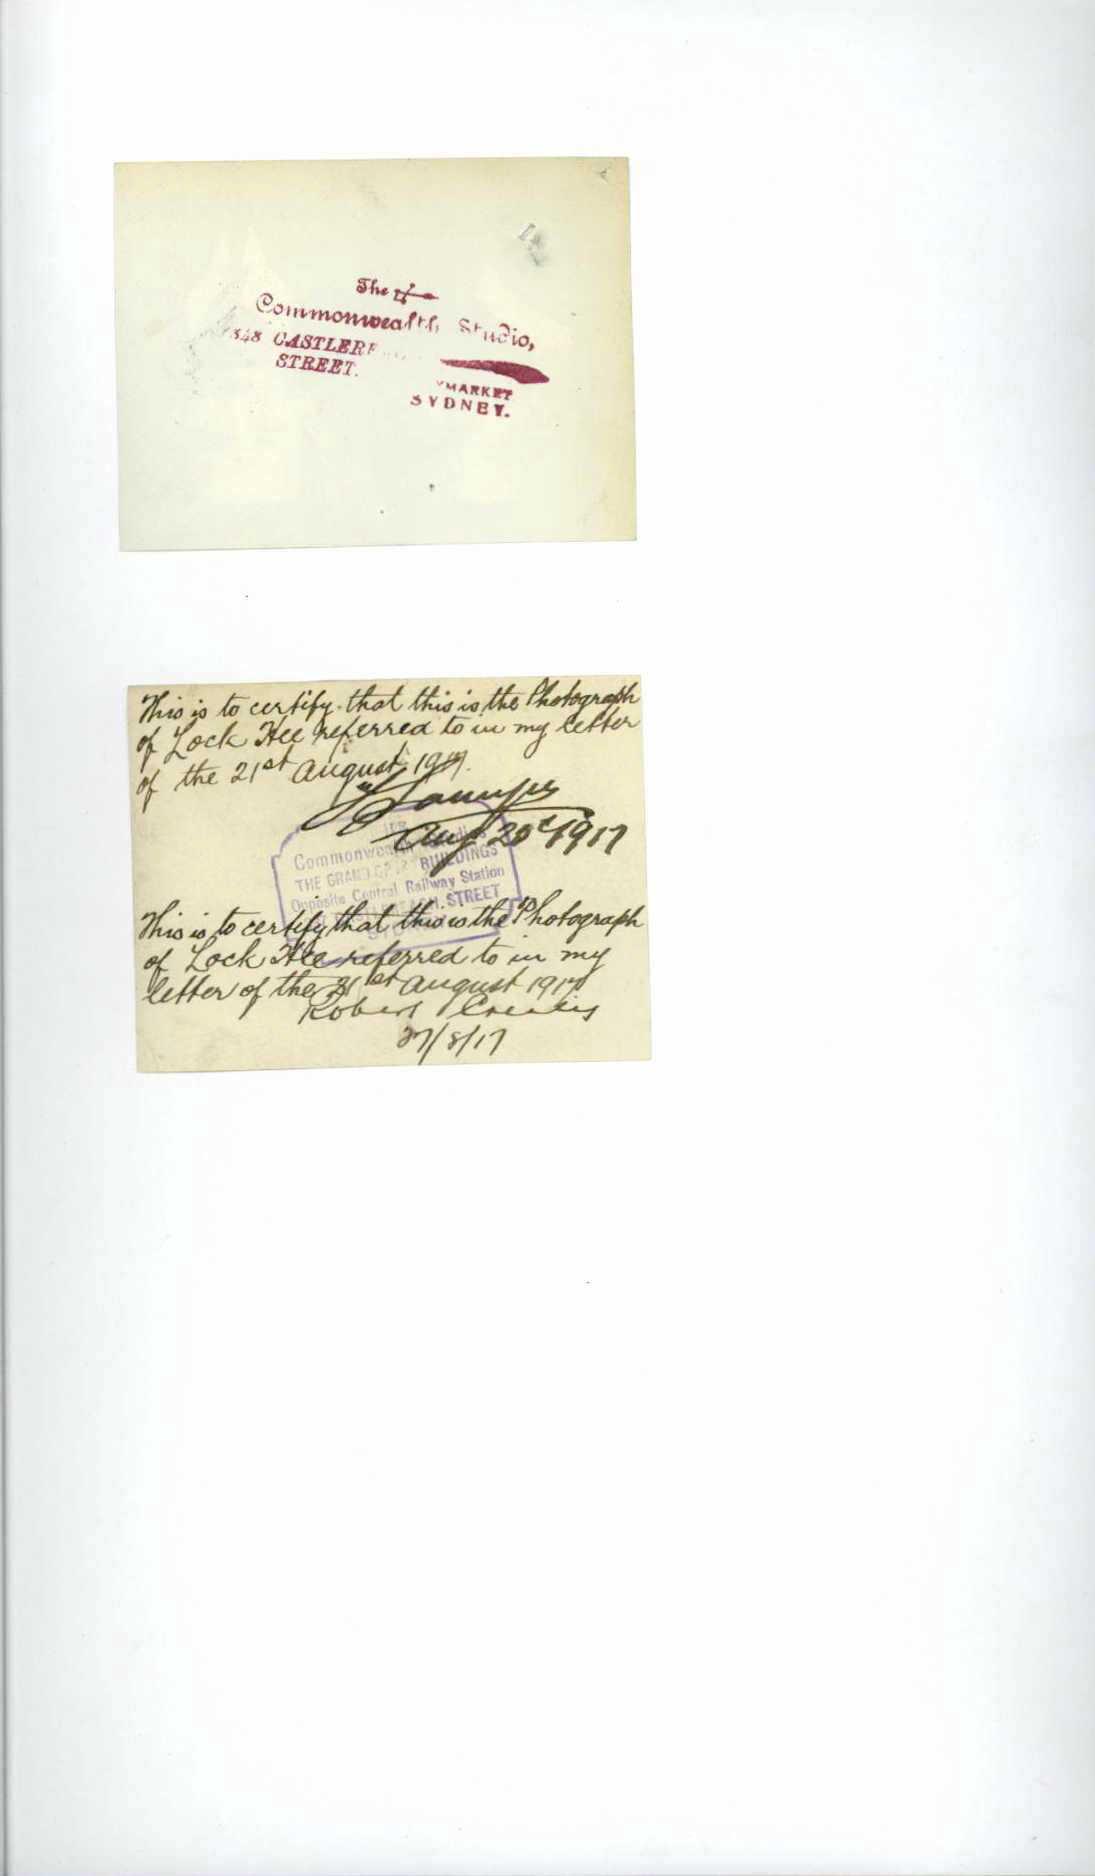 The
Commonwealth Studio,
348 CASTLERE
STREET.
YMARKET
SYDNEY.
This is to certify that this is the Photograph
of Lock Hee referred to in my letter
of the 21st August 1917.
Aug 1917
The
Commonwealth Studios
THE GRAND BUILDINGS
Opposite Central Railway Station
STREET
This is to certify that this is the Photograph
of Lock Hee referred to in my
letter of the 21st August 1917
Robert
27/8/17